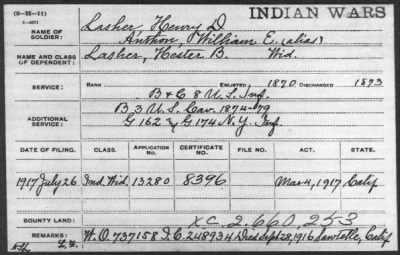 (3-211)
INDIAN WARS
NAME OF SOLDIER: Lasher Henry D.
Anthon William E. (alias)
NAME AND CLASS OF DEPENDENT: Lasher, Hester B. Wid.
SERVICE: RANK ENLISTED 1870 DISCHARGED 1893
B & C 8 U.S. Inf.
ADDITIONAL SERVICE: B 3 U.S. Cav. 1874-79
G 162 & G 174 N.Y. Inf
DATE OF FILING. CLASS. APPLICATION NO. CERTIFICATE NO. FILE NO. ACT. STATE.
1917 July 26 Ind. Wid. 13280 8396 Mar 4, 1917 Calif
BOUNTY LAND: XC 2.660.253
REMARKS: W.O. 737158 I.C. 248934 Died Sept 28, 1916 Sawtelle, Calif